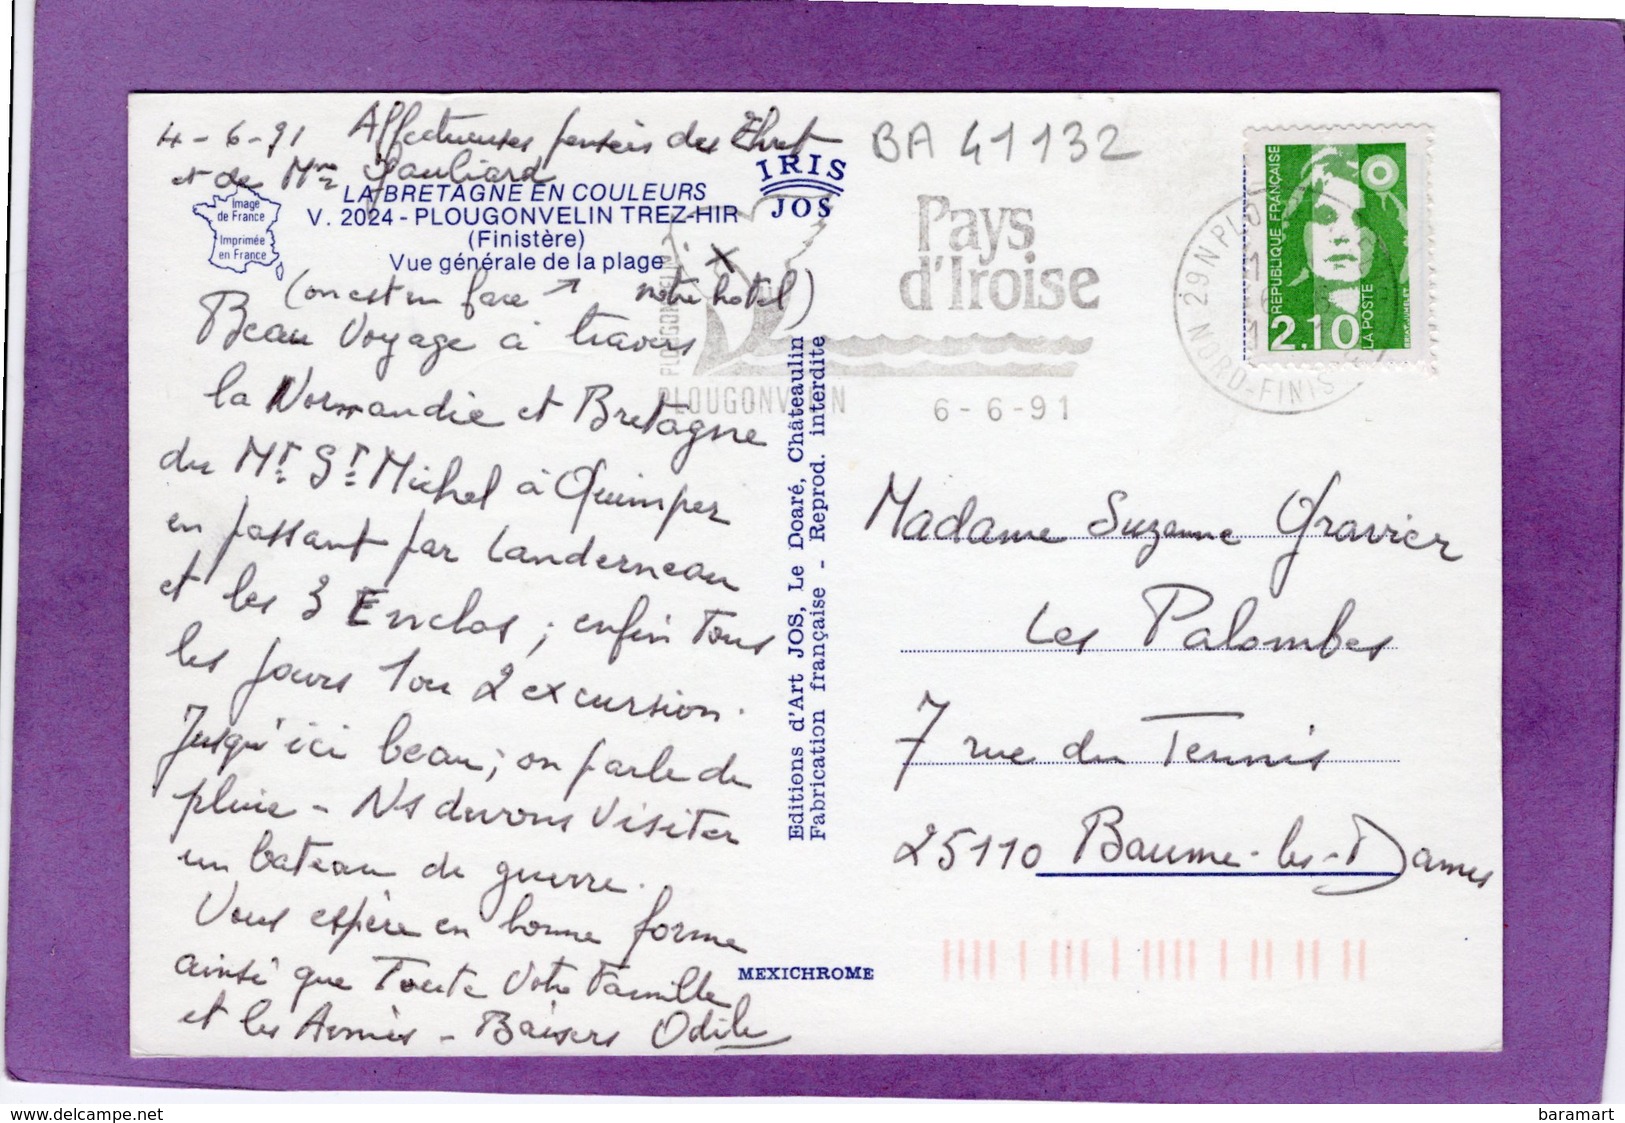 4-6-91 Affectueuses pensées des Ehret
et de Mme Gauliard
BA 41132
IRIS
JOS
LA BRETAGNE EN COULEURS
V. 2024 - PLOUGONVELIN TREZ-HIR
(Finistère)
Vue générale de la plage x
Image
de France
Imprimée
en France
(on est en face ↗ notre hotel)
Beau Voyage à travers
la Normandie et Bretagne
du Mt St Michel à Quimper
en passant par Landerneau
et les 3 Enclos ; enfin Tous
les jours 1 ou 2 excursion.
Jusqu'ici beau ; on parle de
pluie - Ns devons Visiter
un bateau de guerre.
Vous espère en bonne forme
ainsi que Toute Votre Famille
et les Amies - Baisers Odile
Editions d'Art JOS, Le Doaré, Châteaulin
Fabrication française - Reprod. interdite
MEXICHROME
Pays
d'Iroise
PLOUGONVELIN
PLOUGONVELIN
6-6-91
29 N PLOU
NORD-FINIS
REPUBLIQUE FRANÇAISE
2.10
LA POSTE
Madame Suzanne Gravier
Les Palombes
7 rue du Tennis
25110 Baume-les-Dames
www.delcampe.net
baramart